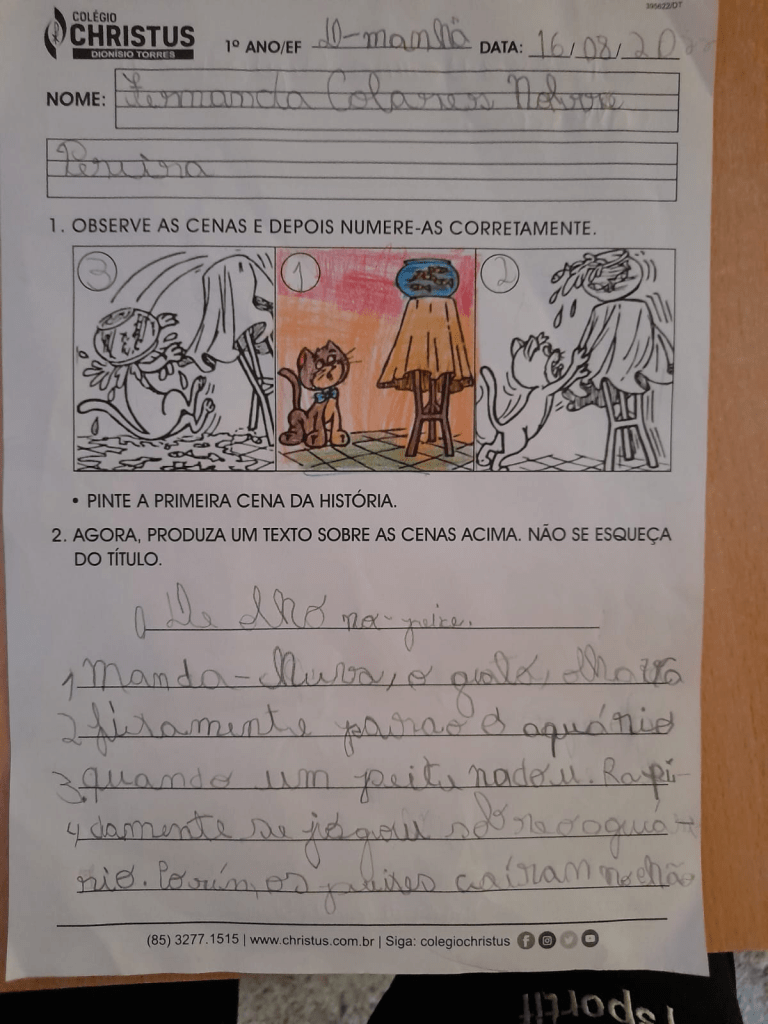 395622/DT
COLÉGIO
CHRISTUS
DIONÍSIO TORRES
1º ANO/EF D-manhã DATA: 16/08/20
NOME: Fernanda Colares
1. OBSERVE AS CENAS E DEPOIS NUMERE-AS CORRETAMENTE.
3 1 2
• PINTE A PRIMEIRA CENA DA HISTÓRIA.
2. AGORA, PRODUZA UM TEXTO SOBRE AS CENAS ACIMA. NÃO SE ESQUEÇA
DO TÍTULO.
De olho no peixe.
1 Manda-Chuva, o gato, olhava
2 fixamente para o aquário
3. quando um peixe nadou. Rapi-
4 damente se jogou sobre o aquá-
rio. Porém, os peixes caíram no chão
(85) 3277.1515 | www.christus.com.br | Siga: colegiochristus
sportif